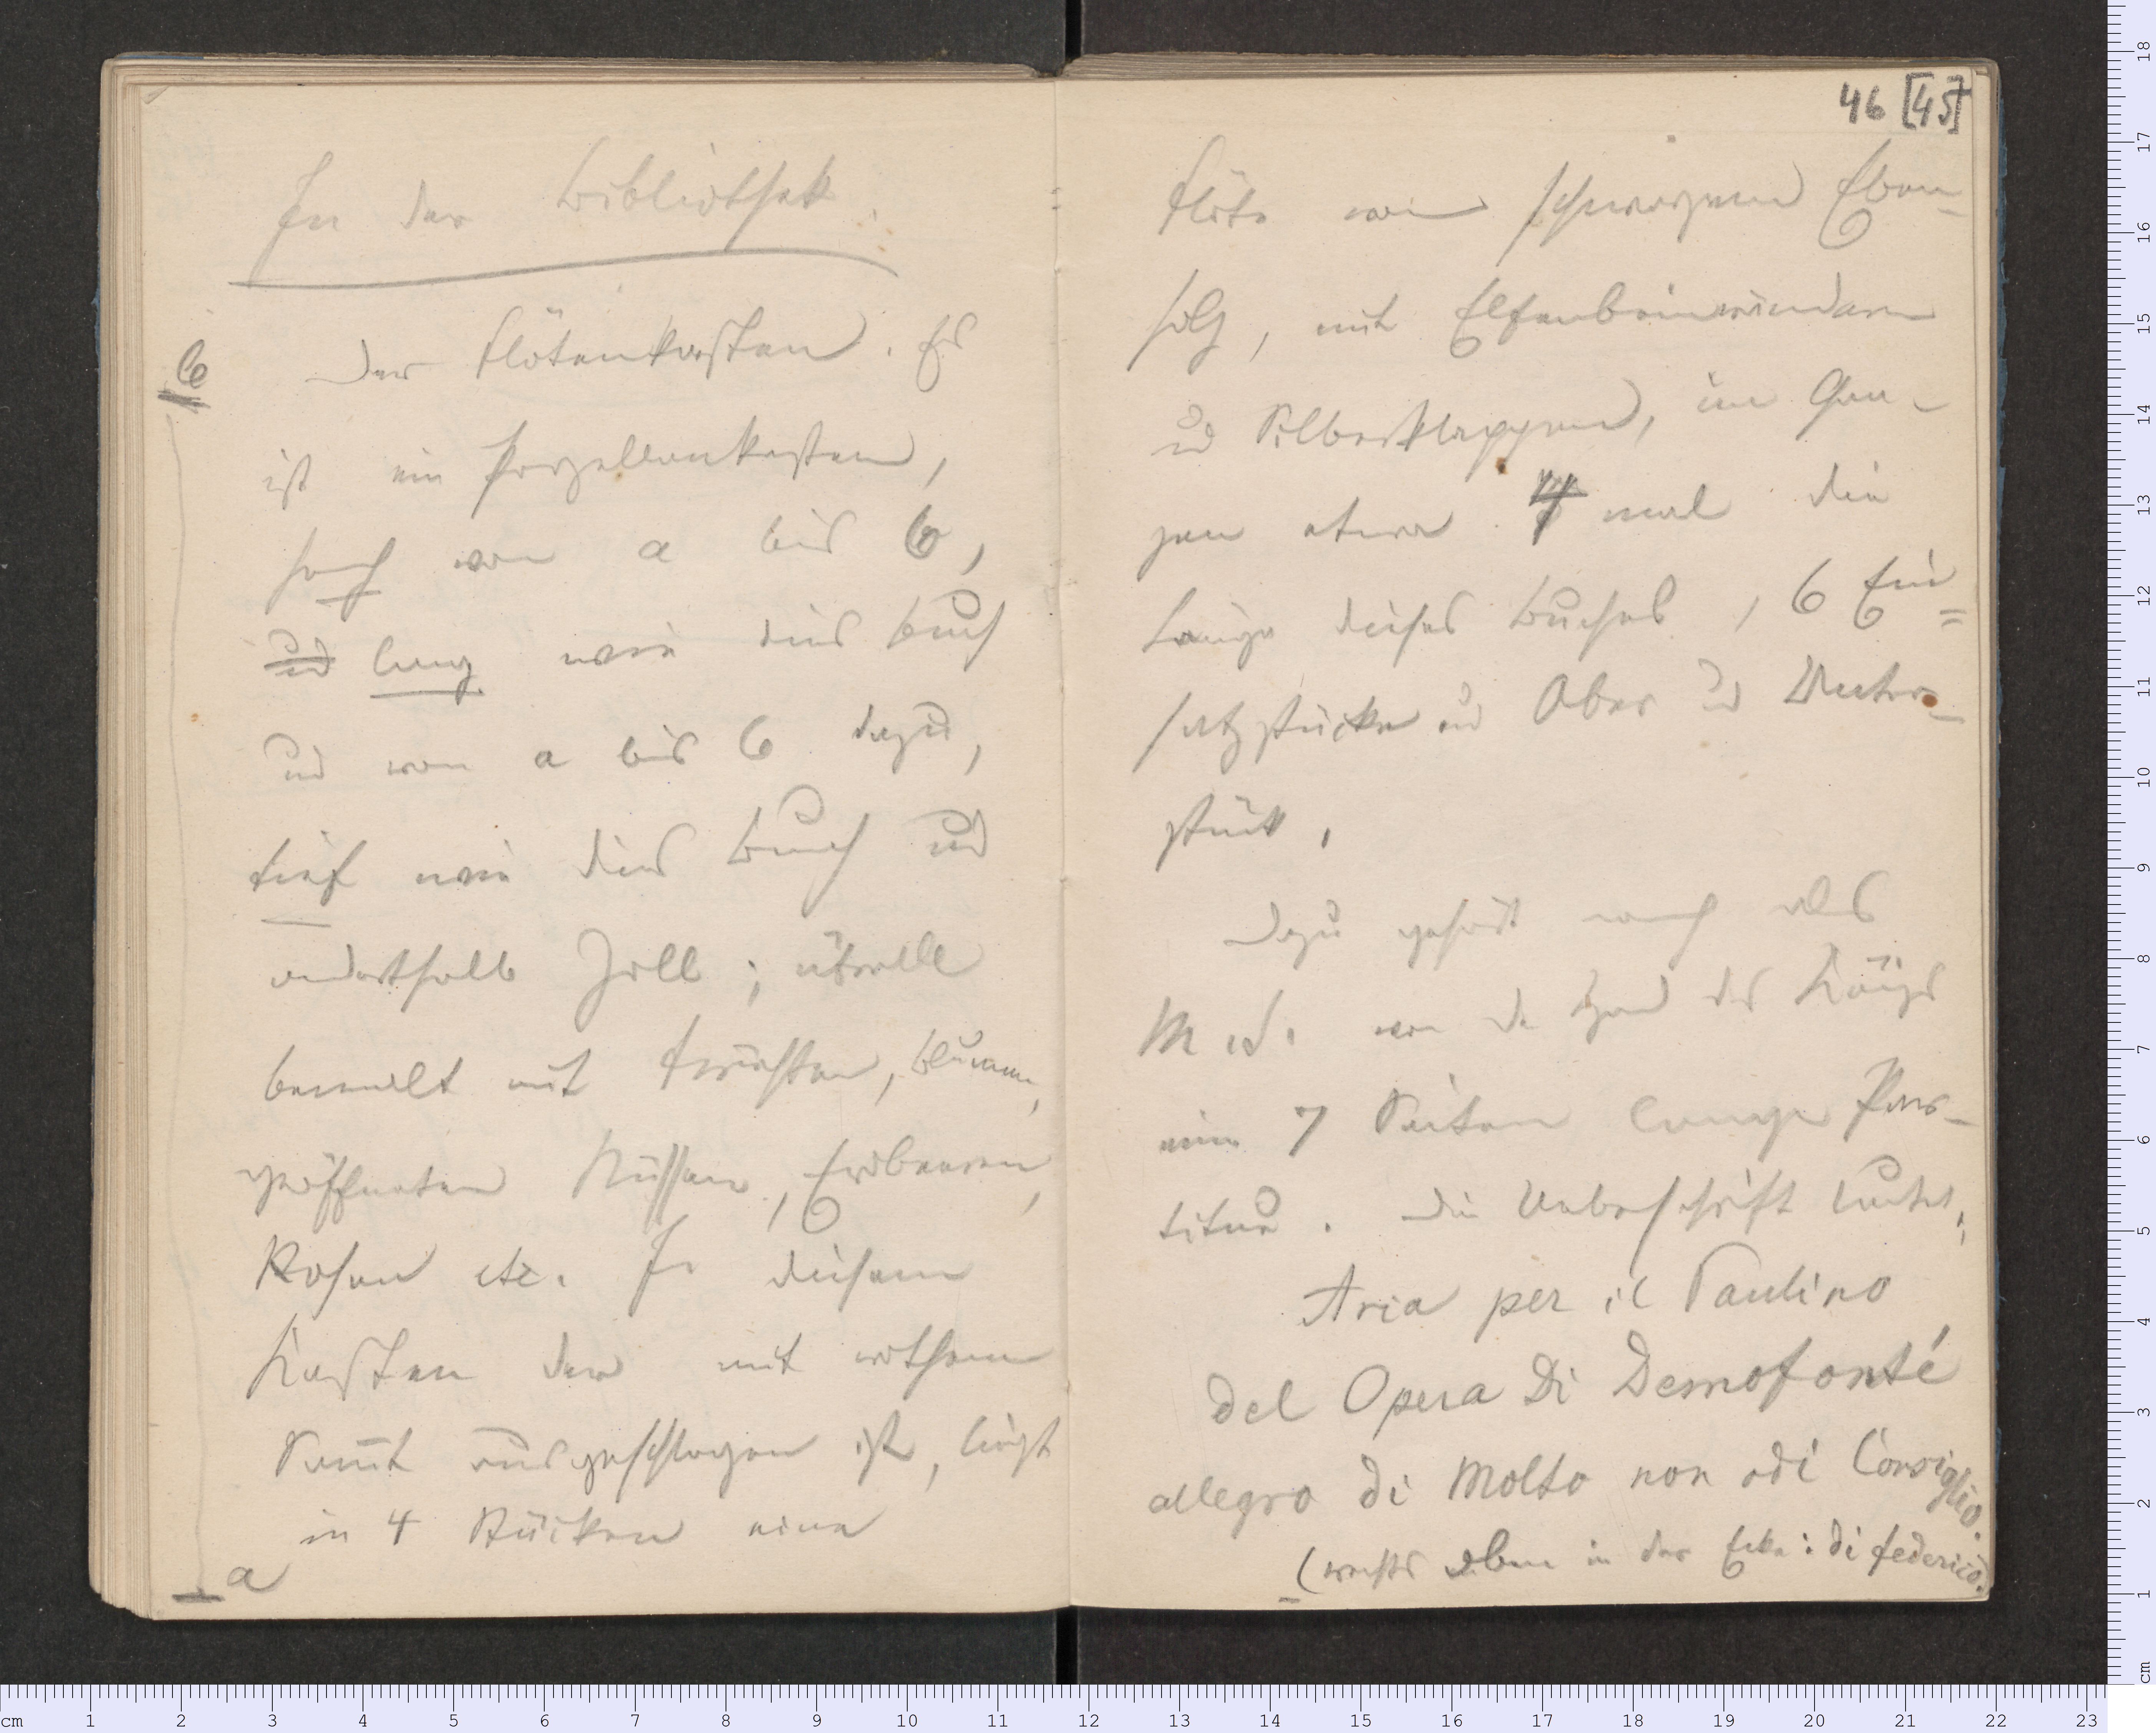 In der Bibliothek.
b
Der Flötenkasten. Es
ist ein Porzellankasten,
hoch von a bis b,
und lang wie dies Buch
und von a bis b dazu,
tief wie dies Buch und
anderthalb Zoll; überall
bemalt mit Früchten, Blumen,
geöffneten Nüssen, Erdbeeren,
Rosen etc. In diesem
Kasten der mit rothem
Sam̅t ausgeschlagen ist, liegt
in 4 Stücken eine
a
46 [45]
Flöte von schwarzem Eben-
holz, mit Elfenbeinrändern
und Silberklappen, im Gan-
zen etwa 4 mal die
Länge dieses Buches, 6 Ein=
satzstücke und Ober und Unter-
stück.
Dazu gehört noch als
M. S. von der Hand des Königs
eine 7 Seiten lange Par-
titur. Die Ueberschrift lautet:
Aria per il Paulino
del Opera Di Demofonté
allegro di Molto non odi Consiglio.
(rechts oben in der Ecke: di federico.